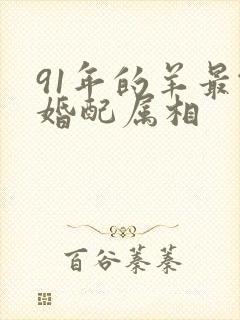 91年的羊最
婚配属相
百谷蓁蓁